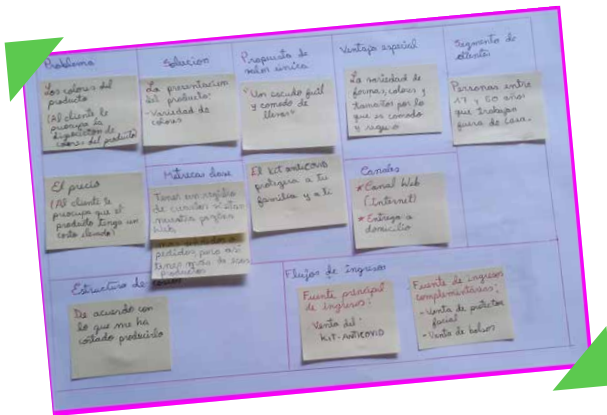 Problema
Los colores del
producto
(Al cliente le
preocupa la
disposicion de
colores del producto)
El precio
(Al cliente le
preocupa que el
producto tenga un
costo elevado)
Solucion
La presentacion
del producto:
- Variedad de
colores
Métricas clave
Tener un registro
de cuantas visitas
nuestra pagina
Web,
pedidos, para asi
tener mas de esos
productos
Propuesta de
valor única
"Un escudo fácil
y comodo de
llevar"
El KIT ANTICOVID
protegera a tu
familia y a ti
Ventaja especial
La variedad de
formas, colores y
tamaños por lo
que es comodo
y seguro
Canales
* Canal Web
(Internet)
* Entrega a
domicilio
Segmento de
clientes
Personas entre
17 y 50 años
que trabajan
fuera de casa.
Estructura de
costos
De acuerdo con
lo que me ha
costado producirlo
Flujos de Ingresos
Fuente principal
de ingresos:
- Venta del:
KIT-ANTICOVID
Fuente de ingresos
complementarios:
- Venta de protector
facial
- Venta de bolsos